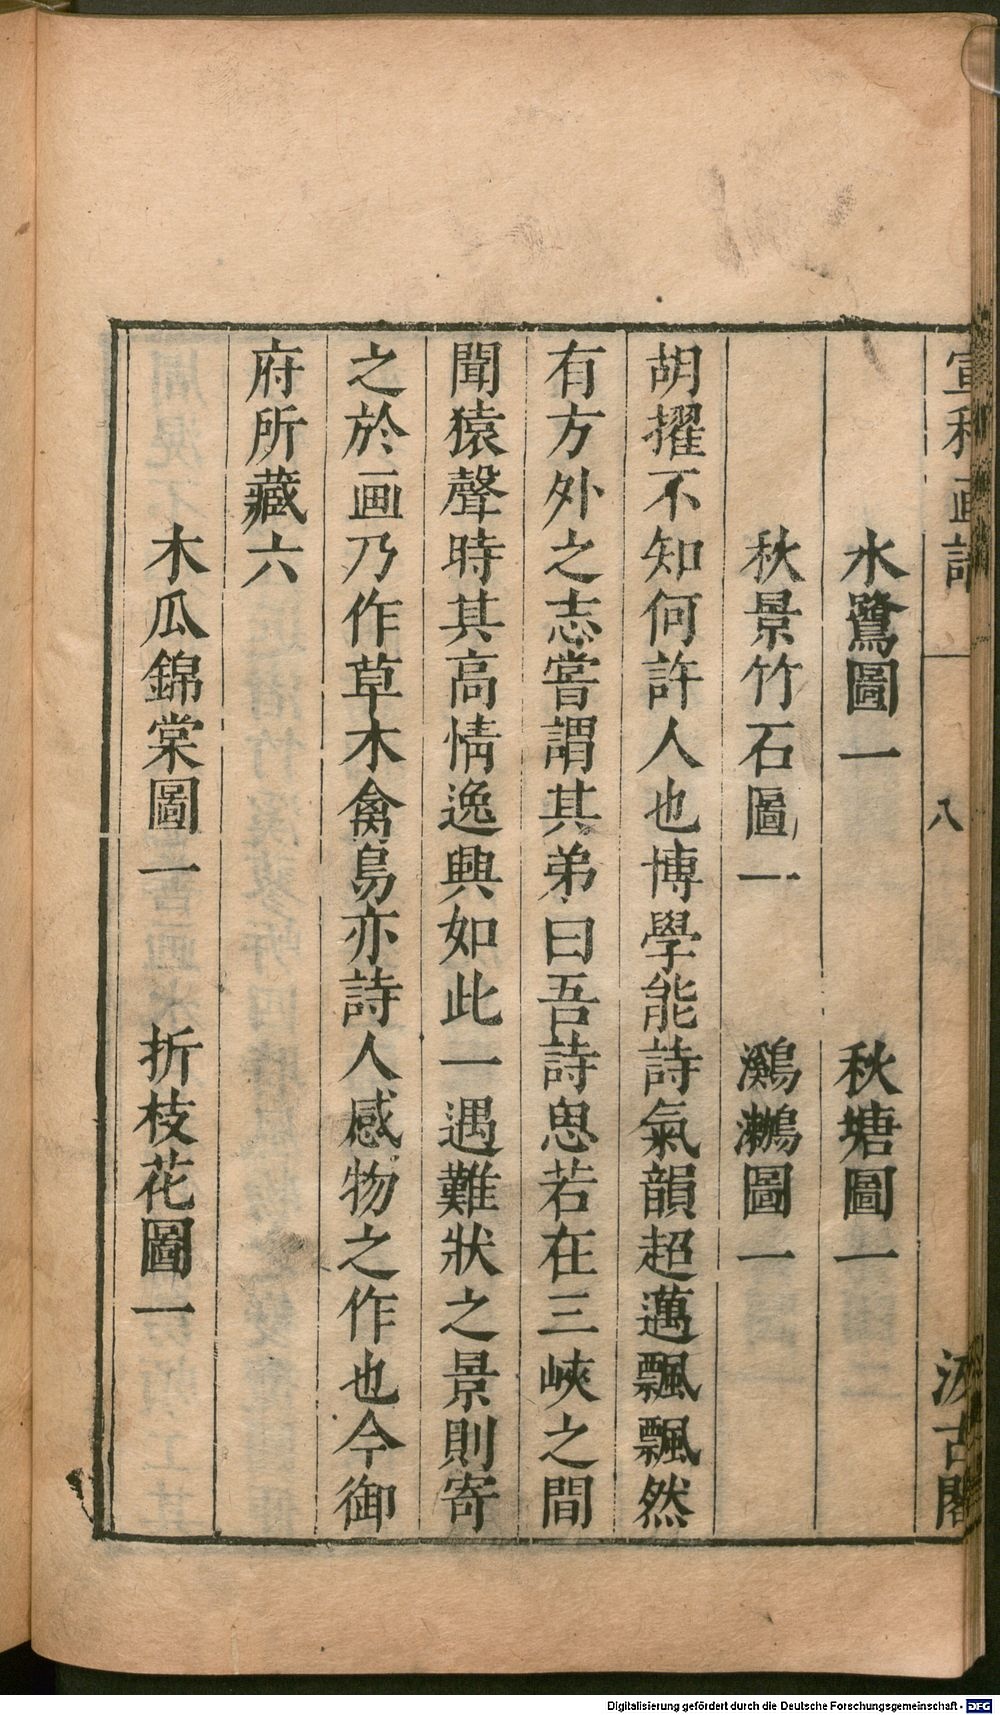 宣和画譜 八 汲古閣
水鷺圖一 秋塘圖一
秋景竹石圖一 鸂鷘圖一
胡擢不知何許人也博學能詩氣韻超邁飄飄然
有方外之志嘗謂其弟曰吾詩思若在三峽之間
聞猿聲時其高情逸興如此一遇難狀之景則寄
之於画乃作草木禽鳥亦詩人感物之作也今御
府所藏六
木瓜錦棠圖一 折枝花圖一
Digitalisierung gefördert durch die Deutsche Forschungsgemeinschaft - DFG